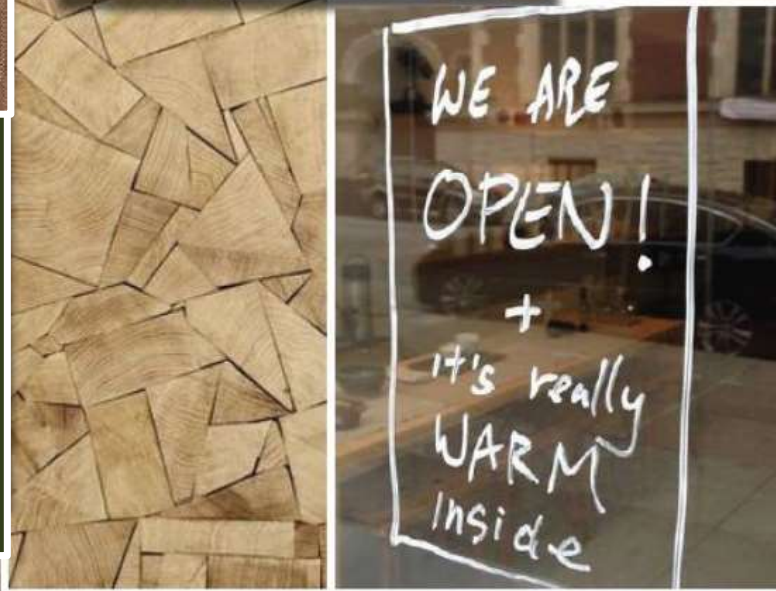 WE ARE
OPEN!
+
it's really
WARM
inside